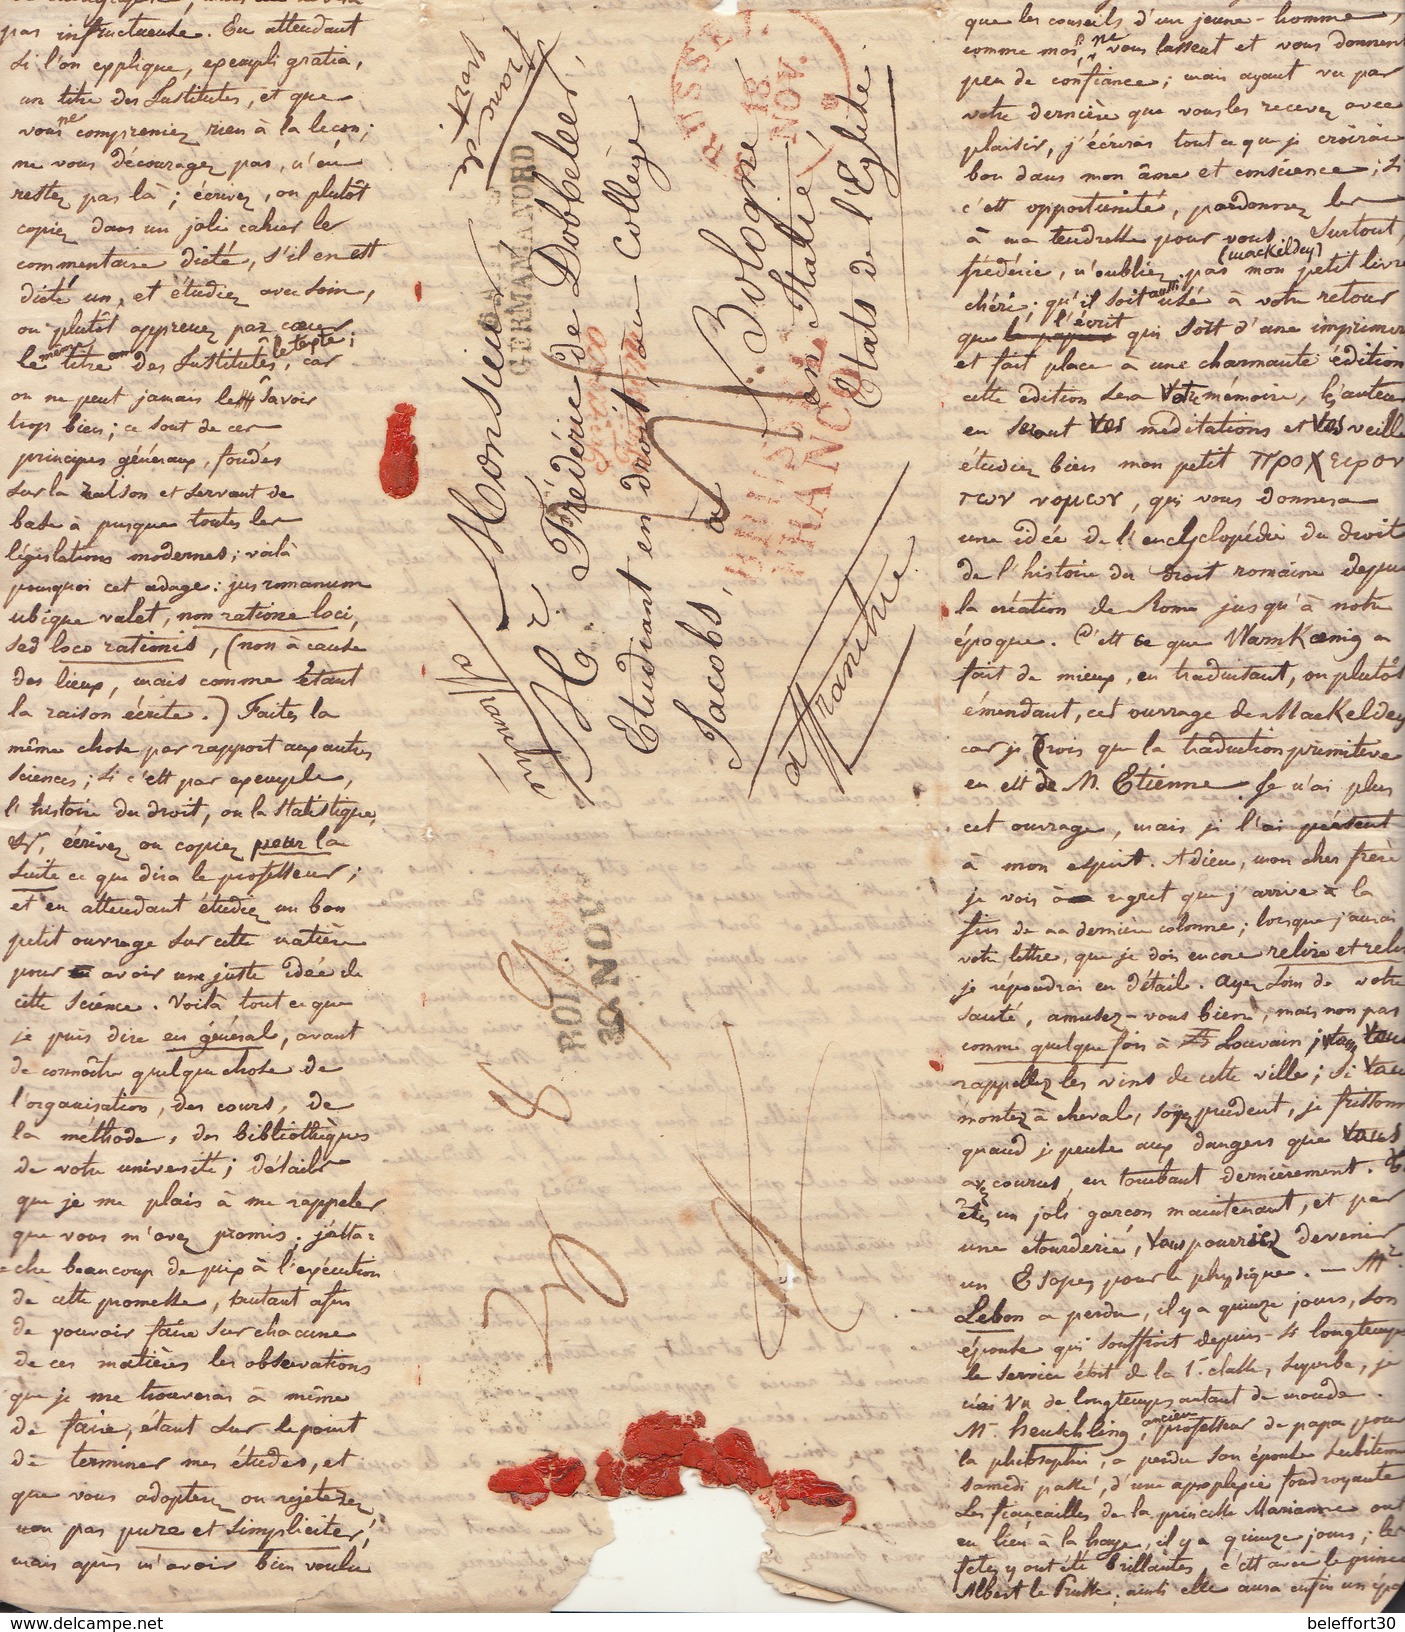 pas infructueuse. En attendant
si l'on explique, exempli gratia,
un titre des Institutes, et que
vous ne compreniez rien à la leçon;
ne vous découragez pas, n'en
restez pas là; écrivez, ou plutôt
copiez dans un joli cahier le
commentaire dicté, s'il en est
dicté un, et étudiez avec soin,
ou plutôt apprenez par cœur
le même titre des Institutes, le texte; car
on ne peut jamais le savoir
trop bien; ce sont de ces
principes généraux, fondés
sur la raison et servant de
base à presque toutes les
législations modernes; voilà
pourquoi cet adage: jus romanum
ubique valet, non ratione loci,
sed loco rationis, (non à cause
des lieux, mais comme étant
la raison écrite.) Faites la
même chose par rapport aux autres
sciences; si c'est par exemple,
l'histoire du droit, ou la statistique,
&r, écrivez ou copiez pour la
suite ce que dira le professeur;
et en attendant étudiez un bon
petit ouvrage sur cette matière
pour avoir une juste idée de
cette science. Voilà tout ce que
je puis dire en général, avant
de connoître quelque chose de
l'organisation, des cours, de
la méthode, des bibliothèques
de votre université; détails
que je me plais à me rappeler
que vous m'avez promis; j'atta=
=che beaucoup de prix à l'exécution
de cette promesse, autant afin
de pouvoir faire sur chacune
de ces matières les observations
que je me trouverai à même
de faire, étant sur le point
de terminer mes études, et
que vous adopterez ou rejeterez
non pas pure et simpliciter,
mais après m'avoir bien voulu
franc de
port
GERMANORD
Monsieur
Mr. Frédéric de Dobbeleer,
Etudiant en droit, au Collège
Jacobs, à Bologne
en Italie
Etats de l'Eglise.
affranchie.
BRUXELLES
18
NOV.
FRANCO
Franco
Frontière
BOLOGNA
30 NOV.
que les conseils d'un jeune-homme,
comme moi, ne vous lassent et vous donnent
peu de confiance; mais ayant vu par
votre dernière que vous les recevez avec
plaisir, j'écrirai tout ce que je croirai
bon dans mon âme et conscience; si
c'est opportunité, pardonnez le
à ma tendresse pour vous. Surtout,
frédéric, n'oubliez pas mon petit livre (mackeldey)
chéri; qu'il soit aussi usé à votre retour
que l'écrit qui sort d'une imprimer
et fait place à une charmante édition
cette édition sera votre mémoire, les auteur
en seront vos méditations et vos veille
étudiez bien mon petit προχειρον
των νομων, qui vous donnera
une idée de l'encyclopédie du droit
de l'histoire du droit romain depuis
la création de Rome jusqu'à notre
époque. C'est ce que Warnkœnig a
fait de mieux, en traduisant, ou plutôt
émendant, cet ouvrage de Mackeldey
car je crois que la traduction primitive
en est de M. Etienne. Je n'ai plus
cet ouvrage, mais je l'ai présent
à mon esprit. Adieu, mon cher frère
je vois à regret que j'arrive à la
fin de ma dernière colonne; lorsque j'aurai
votre lettre, que je dois encore relire et relir
je répondrai en détail. Ayez soin de votre
santé, amusez-vous bien, mais non pas
comme quelque fois à Louvain, vous vous
rappellez les vins de cette ville; si vous
montez à cheval, soyez prudent, je frissonn
quand je pense aux dangers que vous
avez courus, en tombant dernièrement.
êtes un joli garçon maintenant, et par
une étourderie, vous pourriez devenir
un Esope, pour le physique. — Mr.
Lebon a perdu, il y a quinze jours, son
épouse qui souffroit depuis si longtemps
le service étoit de la 1re classe, superbe, je
n'ai vu de longtemps autant de monde.
Mr. heuchling, ancien professeur de papa pour
la philosophie, a perdu son épouse subitem
samedi passé, d'une apoplexie foudroyante
Les fiançailles de la princesse Marianne ont
eu lieu à la haye, il y a quinze jours; les
fêtes y ont été brillantes, c'est avec le prince
Albert de Prusse; ainsi elle aura enfin un épo
www.delcampe.net
beleffort30